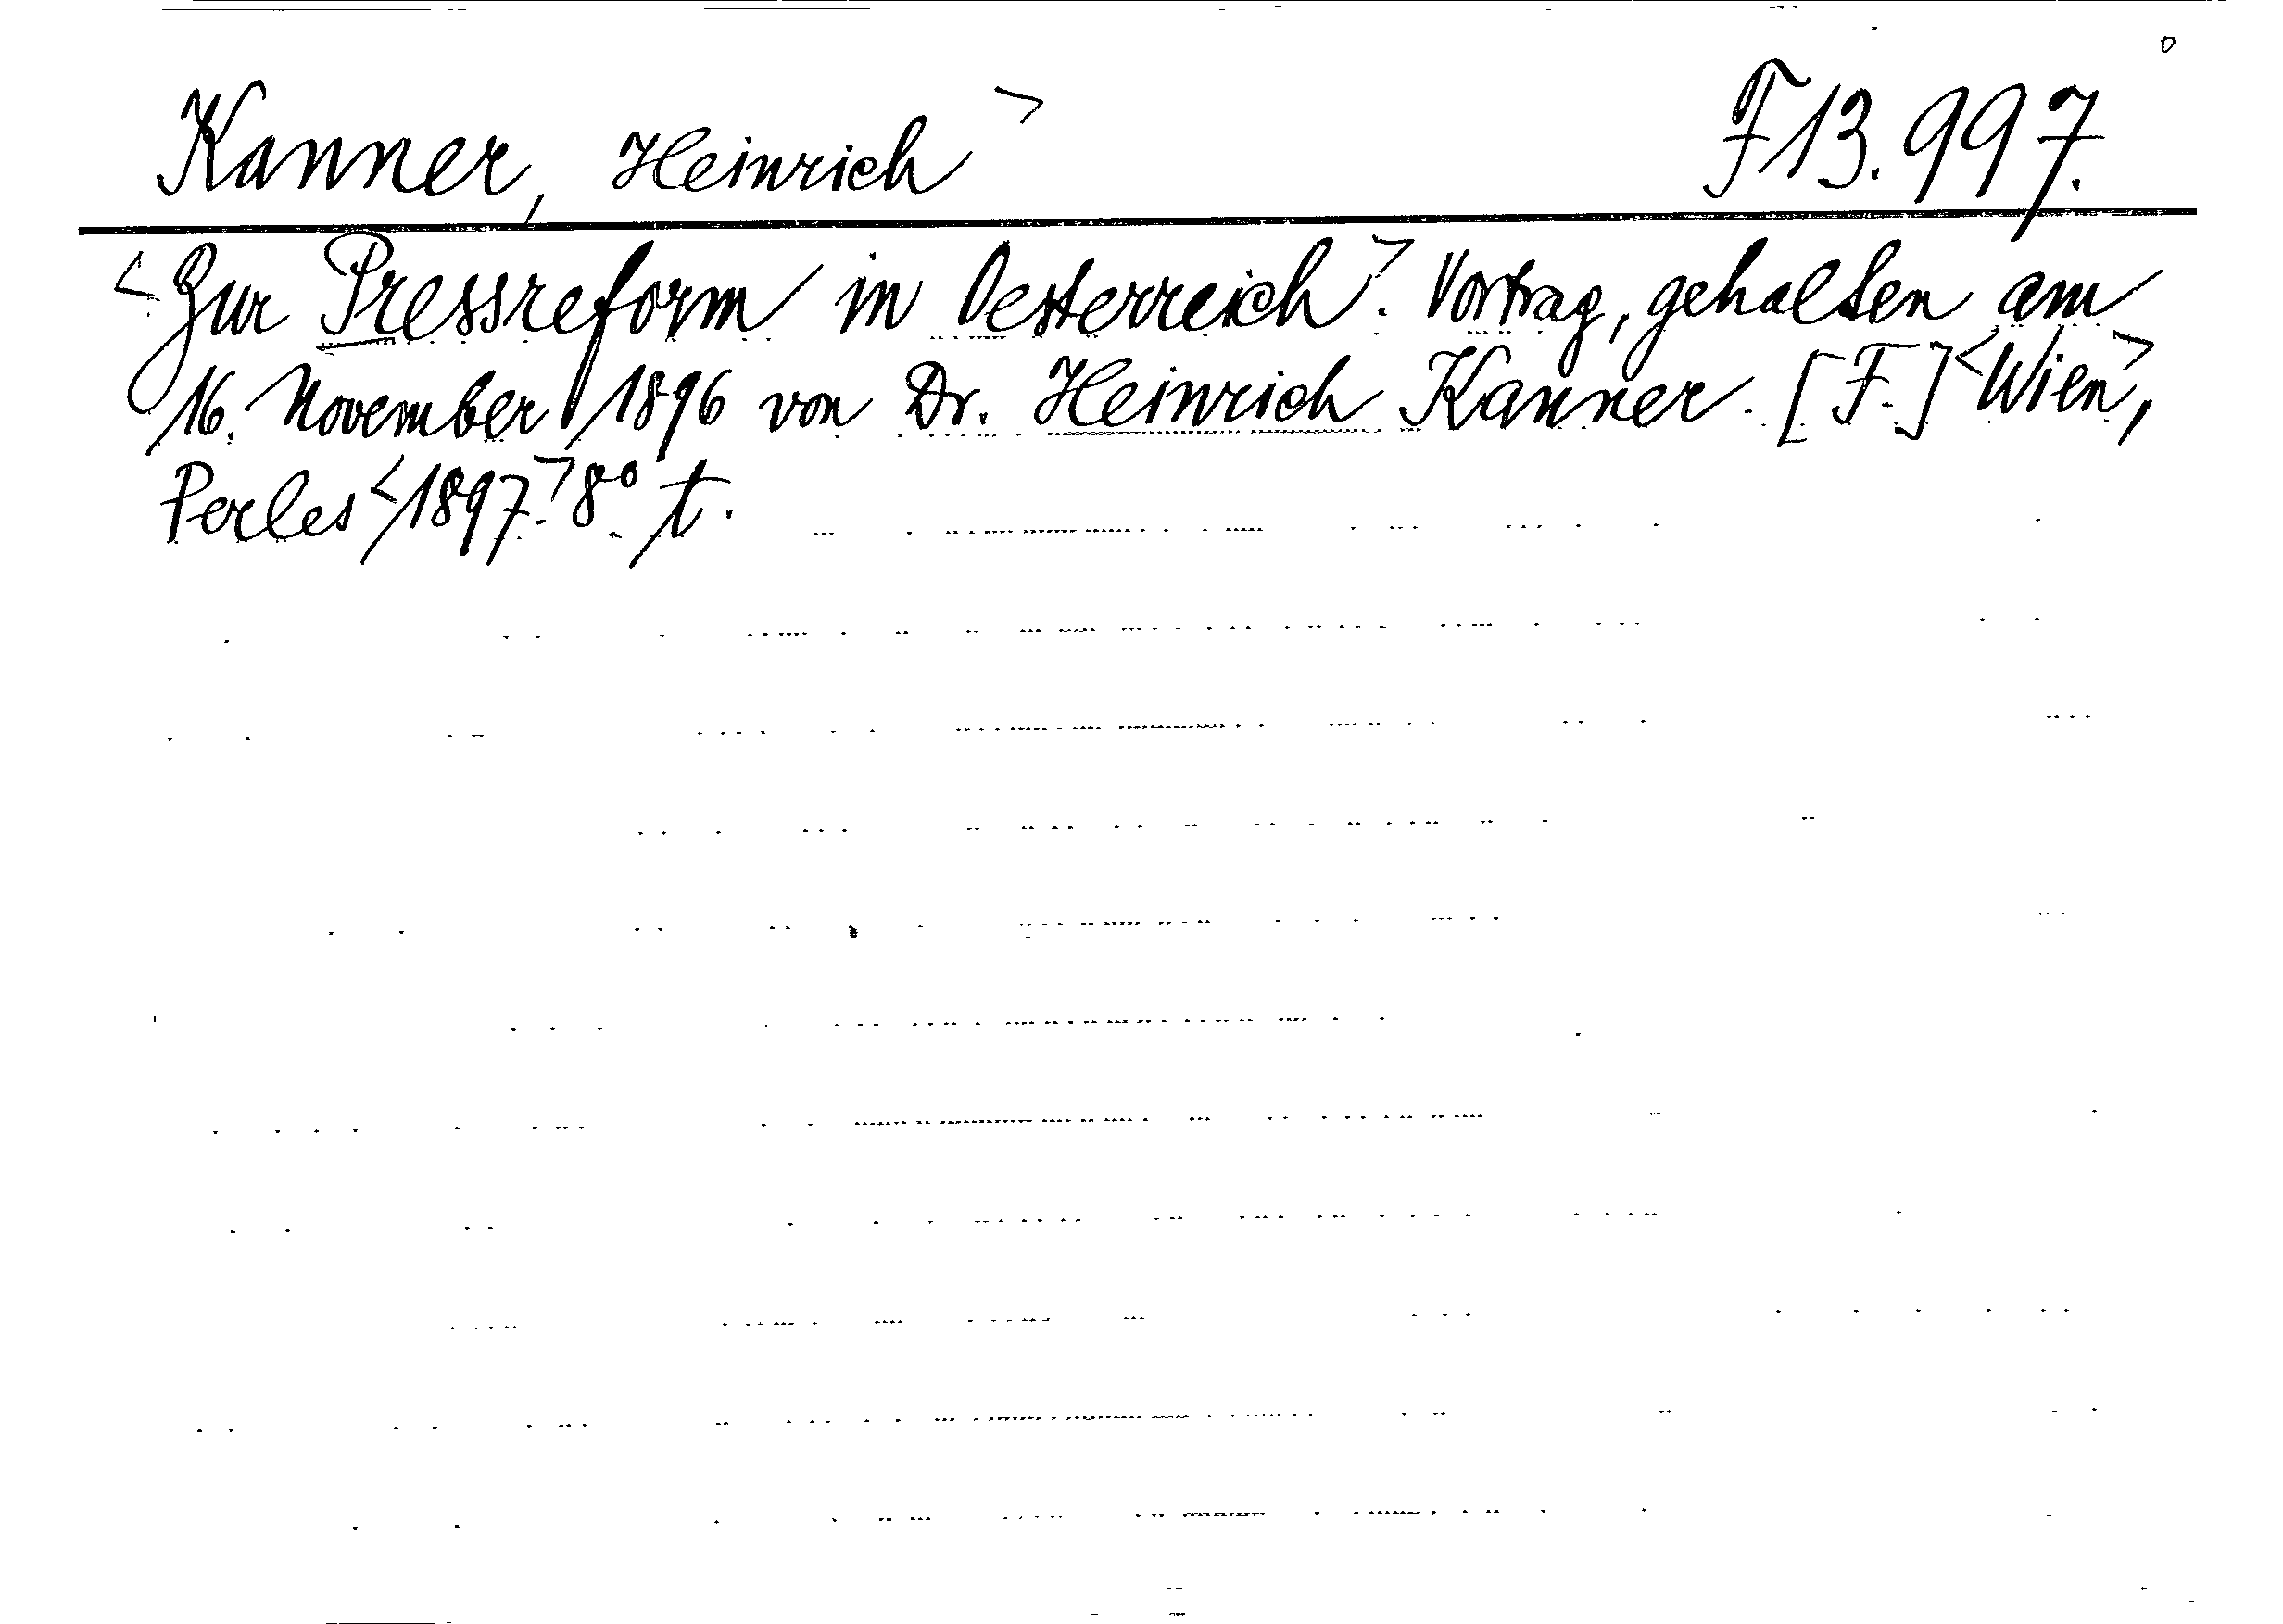 Kanner, Heinrich> F 13.997.
<Zur Pressreform in Oesterreich>. Vortrag, gehalten am
16. November 1896 von Dr. Heinrich Kanner. [F.] <Wien>,
Perles <1897.> 8° t.